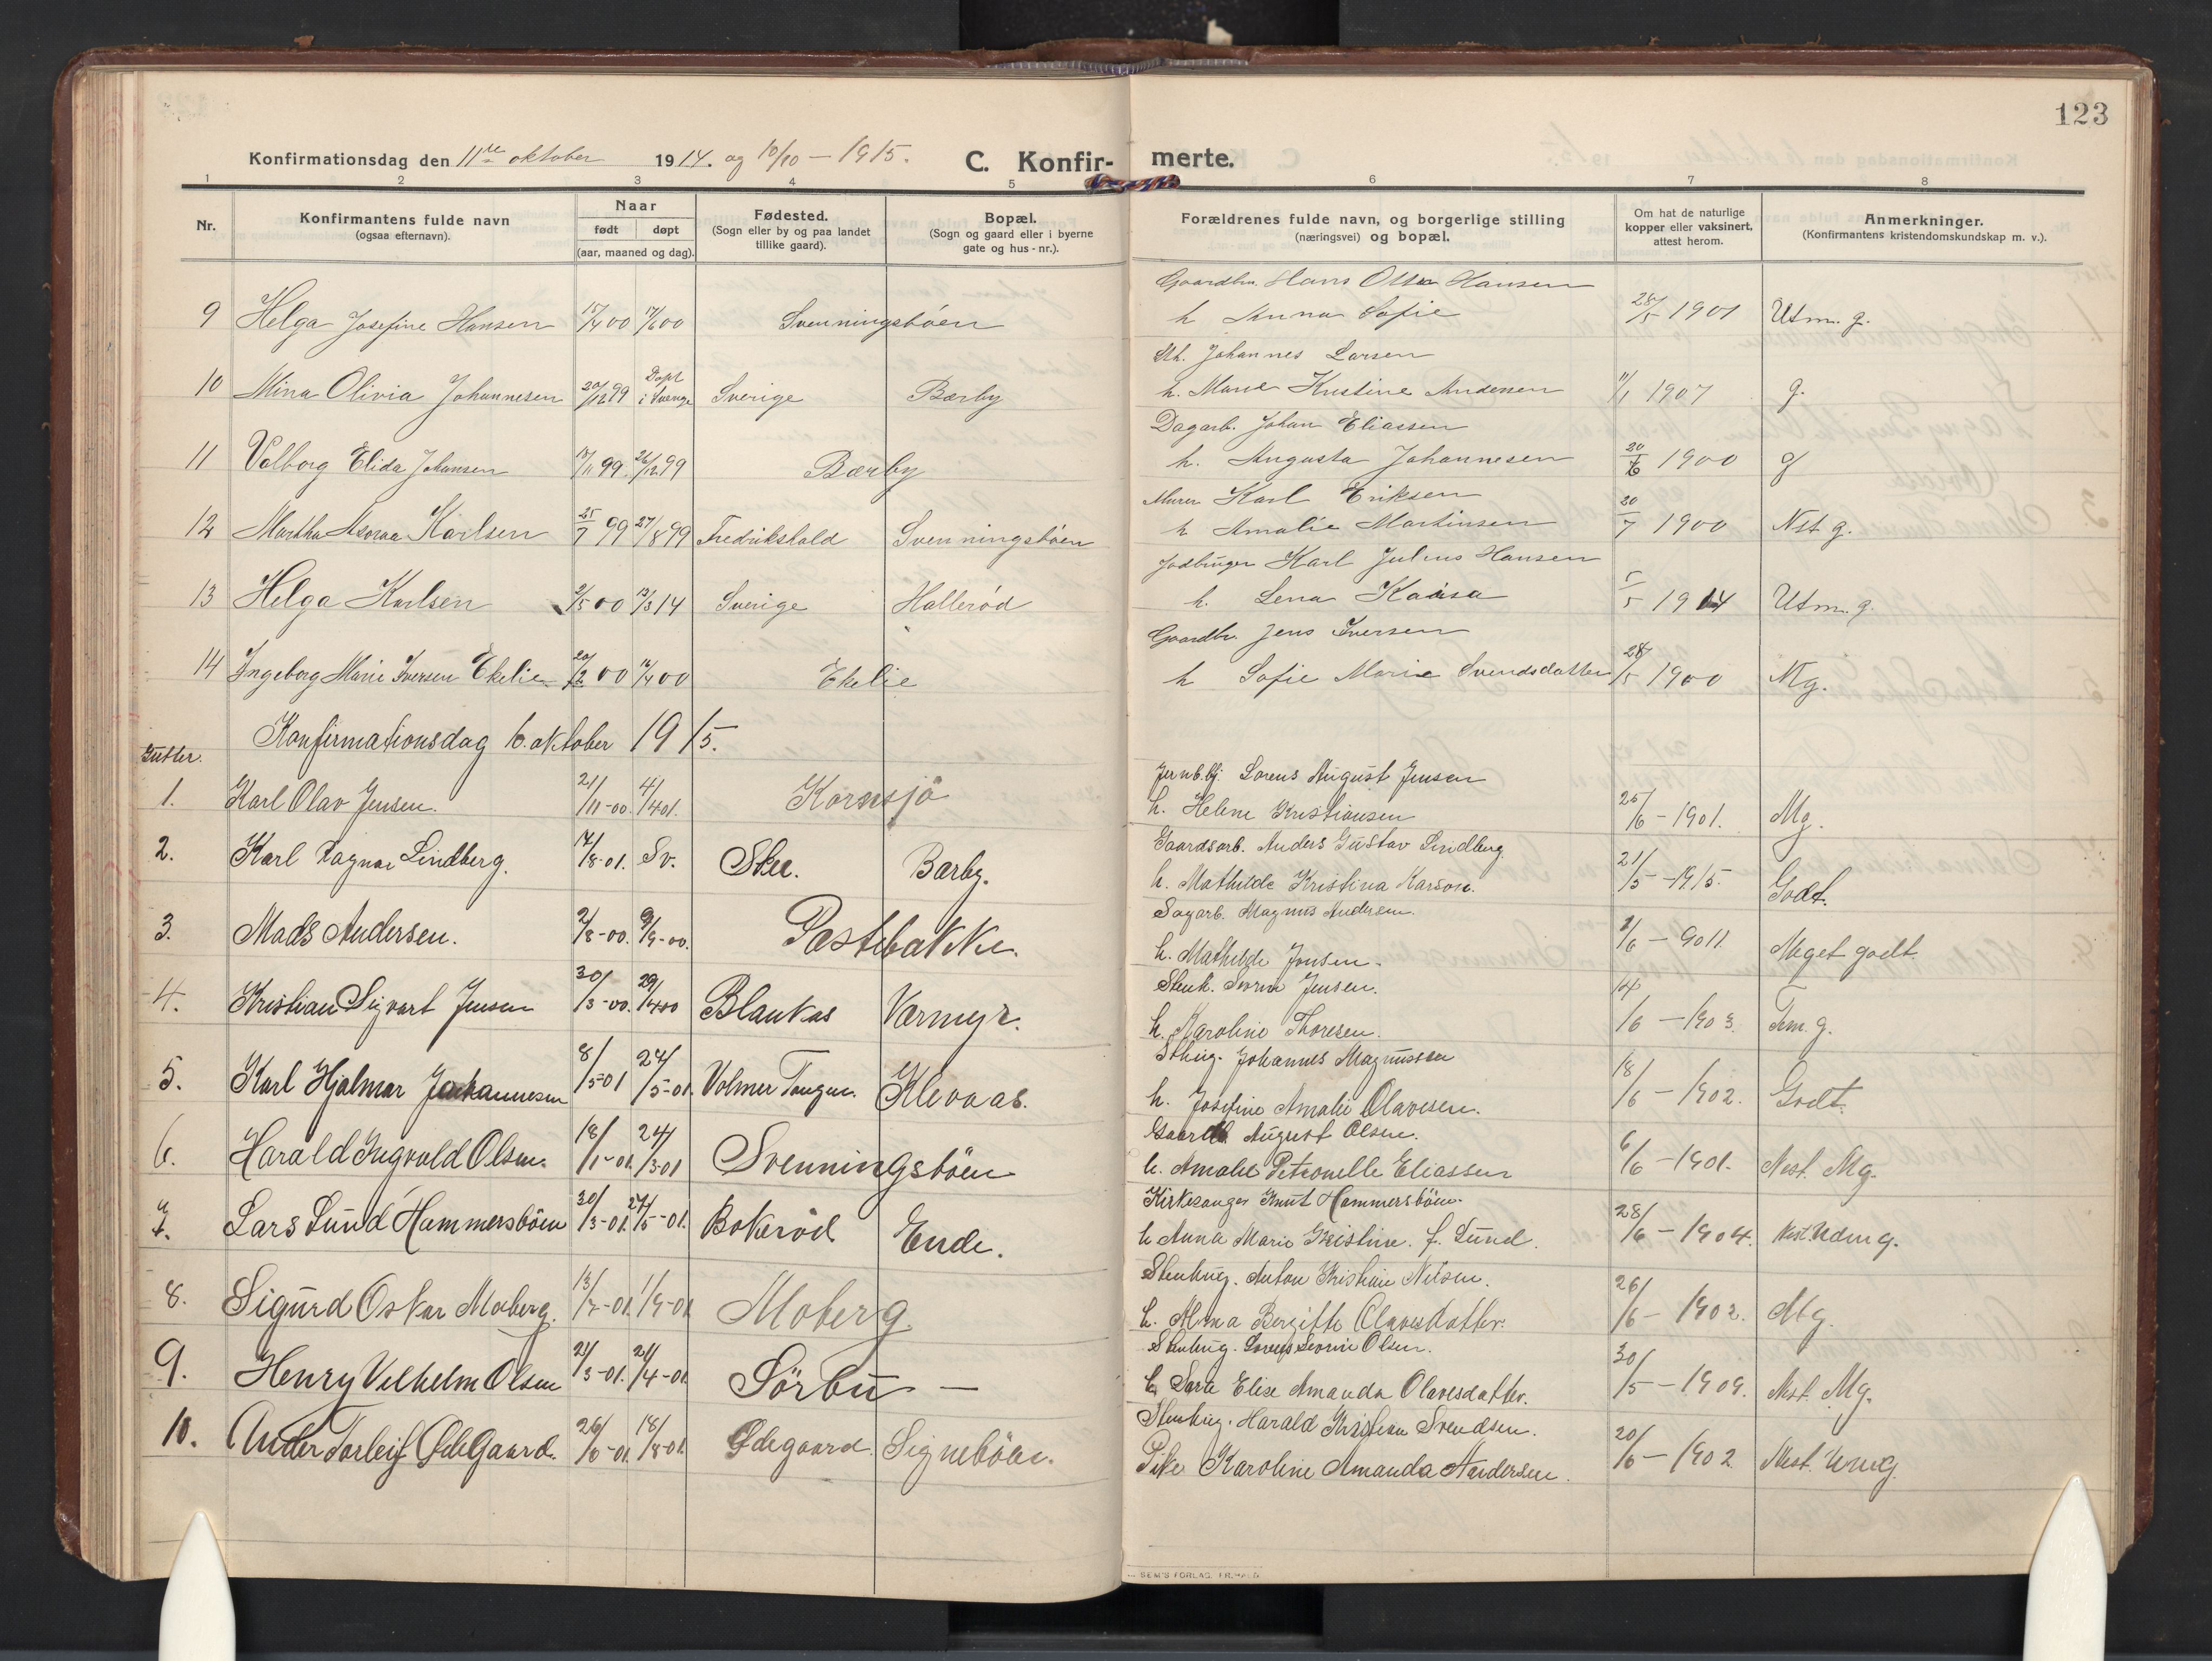 123
Konfirmationsdag den 11te oktober 1914. og 10/10 - 1915. C. Konfirmerte.
1 2 3 4 5 6 7 8
Nr.
Konfirmantens fulde navn
(ogsaa efternavn).
Naar
født døpt
(aar, maaned og dag).
Fødested.
(Sogn eller by og paa landet
tillike gaard).
Bopæl.
(Sogn og gaard eller i byerne
gate og hus-nr.).
Forældrenes fulde navn, og borgerlige stilling
(næringsvei) og bopæl.
Om hat de naturlige
kopper eller vaksinert,
attest herom.
Anmerkninger.
(Konfirmantens kristendomskundskap m. v.).
Gaardbr. Hans Otter Hansen
9 Helga Josefine Hansen 15/4 00 17/6 00 Svenningsbøen h Anna Sofie 28/5 1901 Utm. g.
Johannes Larsen
10 Mina Olivia Johannesen 20/12 99 Døpt i Sverige Sverige Bærby h. Marie Kristine Andersen 11/1 1907 g.
Dagarb. Johan Eliassen
11 Valborg Elida Johansen 13/11 99. 26/12 99 Bærby h. Augusta Johannesen 20/6 1900 g
Murer Karl Eriksen
12 Martha Karlsen 25/7 99 27/8 99 Fredrikshald Svenningsbøen h Amalie Martinsen 20/7 1900 Nst g.
Jordbruger Karl Julius Hansen
13 Helga Karlsen 2/5 00 13/3 14 Sverige Hallerød h. Lena Kaisa 5/5 1914 Utm. g.
Gaardbr. Jens Iversen
14 Ingeborg Marie Iversen Ekelie 20/2 00 16/4 00 Ekelie h Sofie Marie Svendsdatter 28/5 1900 Mg.
Konfirmationsdag 10. oktober 1915.
Gutter.
Jernb.bj. Lorens August Jensen
1. Karl Olav Jensen. 21/11-00. 4/4 01. Kornsjø h. Helene Kristiansen 25/6 - 1901. Mg.
Gaardsarb. Anders Gustav Lindberg
2. Karl Ragnar Lindberg. 17/8-01. Sv. Skee. Bærby. h. Mathilde Kristina Karson. 21/5 - 1915. Godt.
Sagarb. Magnus Andersen.
3. Mads Andersen. 2/8-00. 9/9-00. Pæstebakke. h. Mathilde Jonsen. Meget godt.
Stenh. Jensen.
4. Kristian Sigvart Jensen 30/3-00. 29/4 00 Blankas Varmyr. h. Karoline Thoresen. 14/6 - 1903. Tem. g.
Sthug. Johannes Magnussen
5. Karl Hjalmar Johannesen 8/5-01 27/5-01. Volmer Tangen. Klevaas. h. Josefine Amalie Olavesen. 18/6 - 1902. Godt.
Gaardb. August Olsen.
6. Harald Ingvald Olsen. 18/1-01. 24/3 01 Svenningsbøen h. Amalie Petronelle Eliassen 6/6 - 1901. Nest. Mg.
Kirkesanger Knut Hammersbøen.
7. Lars Lund Hammersbøen 30/3-01. 27/5-01. Bokerød Ende. h Anna Marie Kristine. f. Lund. 28/6 - 1904. Nest. Udm g.
Stenhug. Anton Kristian Nilsen.
8. Sigurd Oskar Moberg. 13/7-01. 1/9-01. Moberg. h. Alma Bergitte Olavesdatter. 26/6 - 1902. Mg.
Stenhug. Olsen.
9. Henry Vilhelm Olsen 21/3-01. 21/4-01. Sørbu — h. Sara Elise Amanda Olavesdatter. 30/5 - 1909. Nest. Mg.
Stenhug. Harald Kristian Svendsen.
10. Ander Torleif Ødegaard. 26/6-01. 18/8-01. Ødegaard. Signebøen. Pike Karoline Amanda Andersen. 20/6 - 1902 Nest. Umg.
SEM'S FORLAG, FR.HALD.